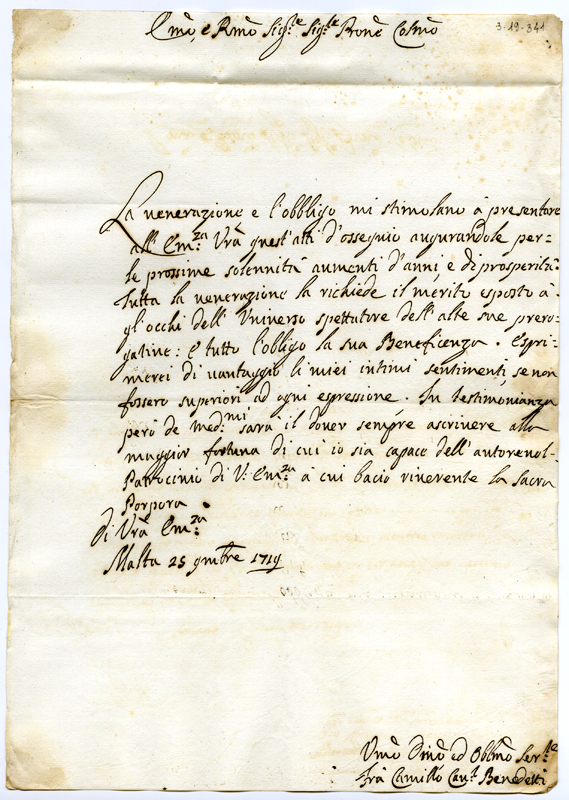 3-19-341
Emo, e Rmo Sig.re Sig.re Prone Colmo
La venerazione e l'obbligo mi stimolano à presentare
all' Em.za Vrâ quest'atti d'ossequio augurandole per-
le prossime solennità aumenti d'anni e di prosperità.
Tutta la venerazione la richiede il merito esposto à
gl'occhi dell' Universo spettatore dell'alte sue prero-
gatine: E tutto l'obligo la sua Beneficenza. Espri-
merei di vantaggio li miei intimi sentimenti, se non
fossero superiori ad ogni espressione. In testimonianza
però de med.mi sarà il dover sempre ascrivere alla
maggior fortuna di cui io sia capace dell'autorevol-
Patrocinio di V. Em.za à cui bacio riverente la Sacra
Porpora
Di Vrâ Em.za
Malta 25 9mbre 1719
Umo Dmo ed Obblmo Ser.re
Frà Camillo Cav.r Benedetti